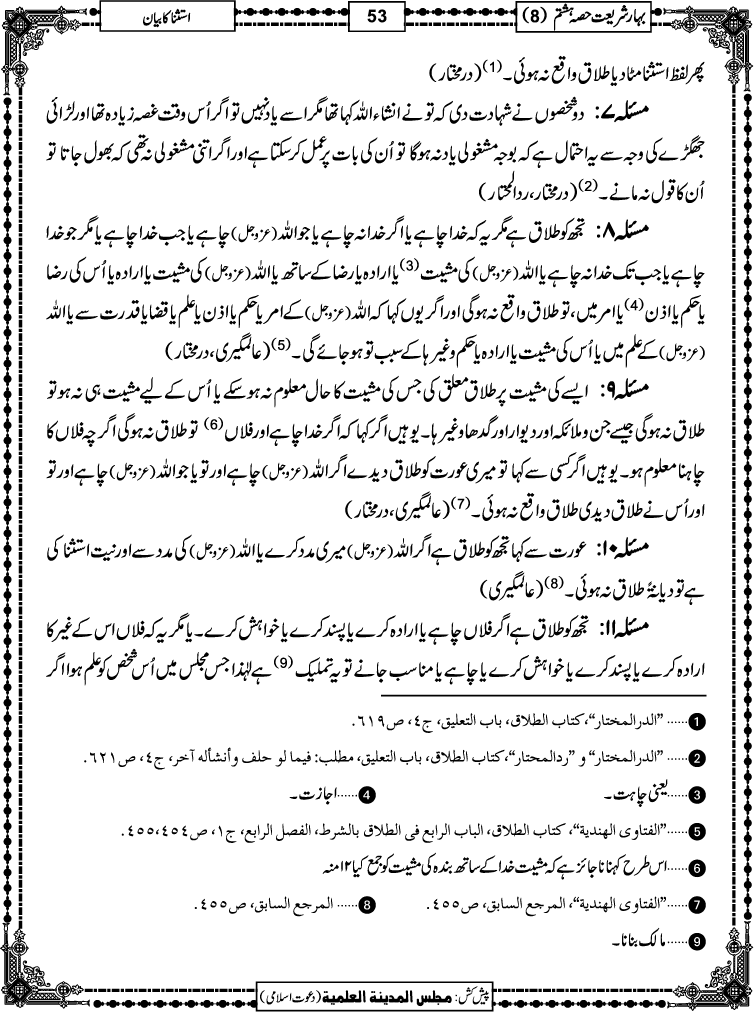 بہار شریعت حصہ ہشتم (8)
53
استثنا کا بیان
پھر لفظ استثنا مٹا دیا طلاق واقع نہ ہوئی۔(1) (درمختار)
مسئلہ ۷: دو شخصوں نے شہادت دی کہ تو نے انشاء اللہ کہا تھا مگر اسے یاد نہیں تو اگر اُس وقت غصہ زیادہ تھا اور لڑائی
جھگڑے کی وجہ سے یہ احتمال ہے کہ بوجہ مشغولی یاد نہ ہوگا تو اُن کی بات پر عمل کر سکتا ہے اور اگر اتنی مشغولی نہ تھی کہ بھول جاتا تو
اُن کا قول نہ مانے۔(2) (درمختار، ردالمحتار)
مسئلہ ۸: تجھ کو طلاق ہے مگر یہ کہ خدا چاہے یا اگر خدا نہ چاہے یا جو اللہ (عزوجل) چاہے یا جب خدا چاہے یا مگر جو خدا
چاہے یا جب تک خدا نہ چاہے یا اللہ (عزوجل) کی مشیت(3) یا ارادہ یا رضا کے ساتھ یا اللہ (عزوجل) کی مشیت یا ارادہ یا اُس کی رضا
یا حکم یا اذن(4) یا امر میں، تو طلاق واقع نہ ہوگی اور اگر یوں کہا کہ اللہ (عزوجل) کے امر یا حکم یا اذن یا علم یا قضا یا قدرت سے یا اللہ
(عزوجل) کے علم میں یا اُس کی مشیت یا ارادہ یا حکم وغیرہا کے سبب تو ہو جائے گی۔(5) (عالمگیری، درمختار)
مسئلہ ۹: ایسے کی مشیت پر طلاق معلق کی جس کی مشیت کا حال معلوم نہ ہو سکے یا اُس کے لیے مشیت ہی نہ ہو تو
طلاق نہ ہوگی جیسے جن و ملائکہ اور دیوار اور گدھا وغیرہا۔ یوہیں اگر کہا کہ اگر خدا چاہے اور فلاں(6) تو طلاق نہ ہوگی اگرچہ فلاں کا
چاہنا معلوم ہو۔ یوہیں اگر کسی سے کہا تو میری عورت کو طلاق دیدے اگر اللہ (عزوجل) چاہے اور تو یا جو اللہ (عزوجل) چاہے اور تو
اور اُس نے طلاق دیدی طلاق واقع نہ ہوئی۔(7) (عالمگیری، درمختار)
مسئلہ ۱۰: عورت سے کہا تجھ کو طلاق ہے اگر اللہ (عزوجل) میری مدد کرے یا اللہ (عزوجل) کی مدد سے اور نیت استثنا کی
ہے تو دیانۃً طلاق نہ ہوئی۔(8) (عالمگیری)
مسئلہ ۱۱: تجھ کو طلاق ہے اگر فلاں چاہے یا ارادہ کرے یا پسند کرے یا خواہش کرے۔ یا مگر یہ کہ فلاں اس کے غیر کا
ارادہ کرے یا پسند کرے یا خواہش کرے یا چاہے یا مناسب جانے تو یہ تملیک(9) ہے لہٰذا جس مجلس میں اُس شخص کو علم ہوا اگر
1 ...... "الدرالمختار"، کتاب الطلاق، باب التعلیق، ج٤، ص٦١٩.
2 ...... "الدرالمختار" و "ردالمحتار"، کتاب الطلاق، باب التعلیق، مطلب: فیما لو حلف وأنشأله آخر، ج٤، ص٦٢١.
3 ......یعنی چاہت۔ 4 ......اجازت۔
5 ......"الفتاوی الهندیة"، کتاب الطلاق، الباب الرابع فی الطلاق بالشرط، الفصل الرابع، ج١، ص٤٥٤،٤٥٥.
6 ......اس طرح کہنا ناجائز ہے کہ مشیت خدا کے ساتھ بندہ کی مشیت کو جمع کیا ۱۲ منہ
7 ......"الفتاوی الهندیة"، المرجع السابق، ص٤٥٥. 8 ...... المرجع السابق، ص٤٥٥.
9 ......مالک بنانا۔
پیش کش: مجلس المدینة العلمیة (دعوت اسلامی)